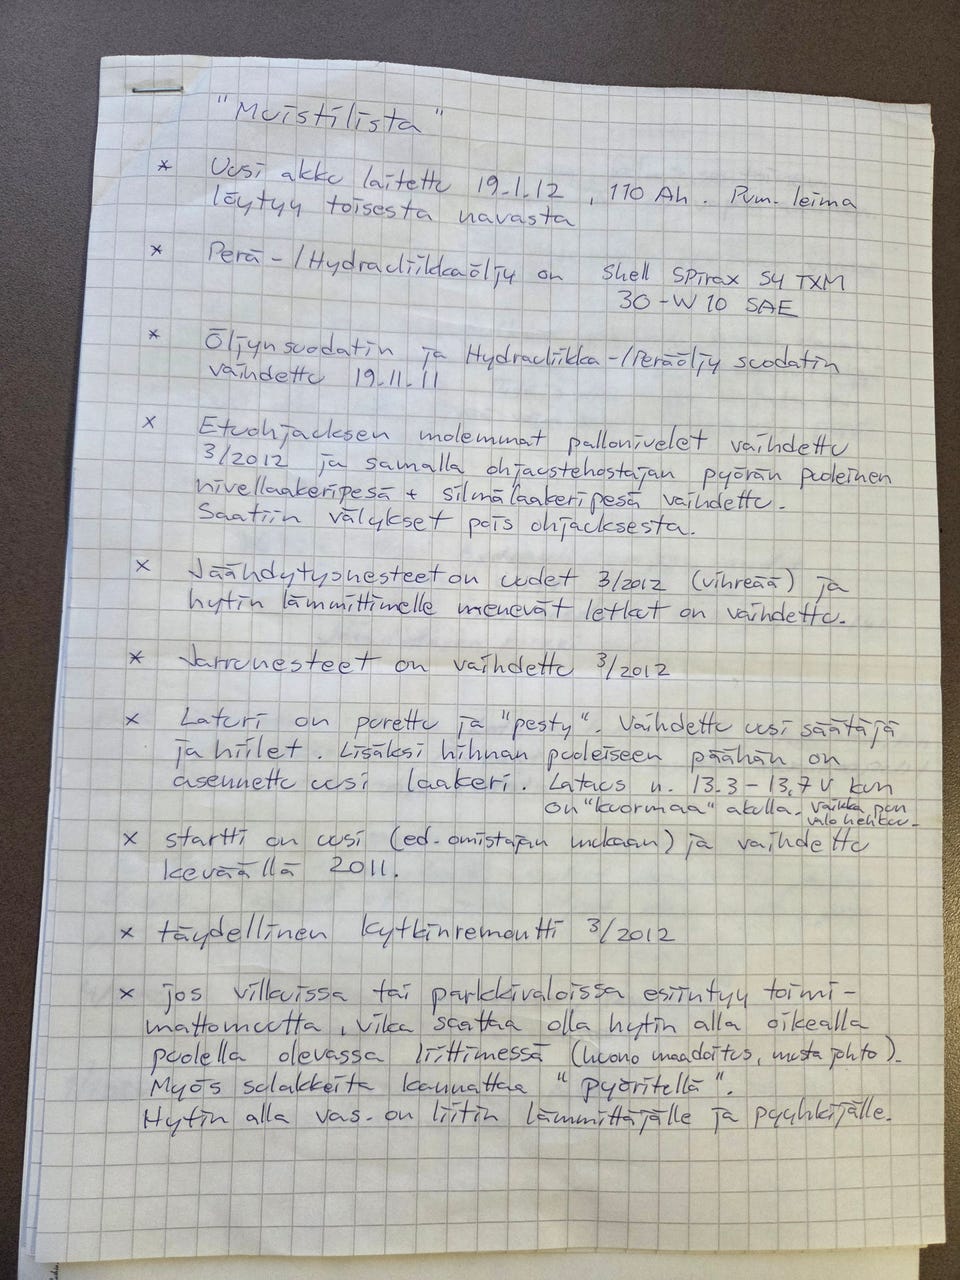 "Muistilista"
* Uusi akku laitettu 19.1.12, 110 Ah. Pvm. leima
löytyy toisesta navasta
* Perä-/Hydrauliikkaöljy on Shell Spirax S4 TXM
30-W10 SAE
* Öljynsuodatin ja Hydrauliikka-/Peräöljy suodatin
vaihdettu 19.11.11
x Etuohjauksen molemmat pallonivelet vaihdettu
3/2012 ja samalla ohjaustehostajan pyörän puoleinen
nivellaakeripesä + silmälaakeripesä vaihdettu.
Saatiin välykset pois ohjauksesta.
x Jäähdytysnesteet on uudet 3/2012 (vihreää) ja
hytin lämmittimelle menevät letkut on vaihdettu.
* Jarrunesteet on vaihdettu 3/2012
x Laturi on purettu ja "pesty". Vaihdettu uusi säätäjä
ja hiilet. Lisäksi hihnan puoleiseen päähän on
asennettu uusi laakeri. Lataus n. 13.3-13,7 V kun
on "kuormaa" akulla. Vaikka pun
valo hehkuu.
x startti on uusi (ed. omistajan mukaan) ja vaihdettu
keväällä 2011.
x täydellinen kytkinremontti 3/2012
x jos vilkuissa tai parkkivaloissa esiintyy toimi-
mattomuutta, vika saattaa olla hytin alla oikealla
puolella olevassa liittimessä (huono maadoitus, musta johto).
Myös sulakkeita kannattaa "pyöritellä".
Hytin alla vas. on liitin lämmittäjälle ja pyyhkijälle.